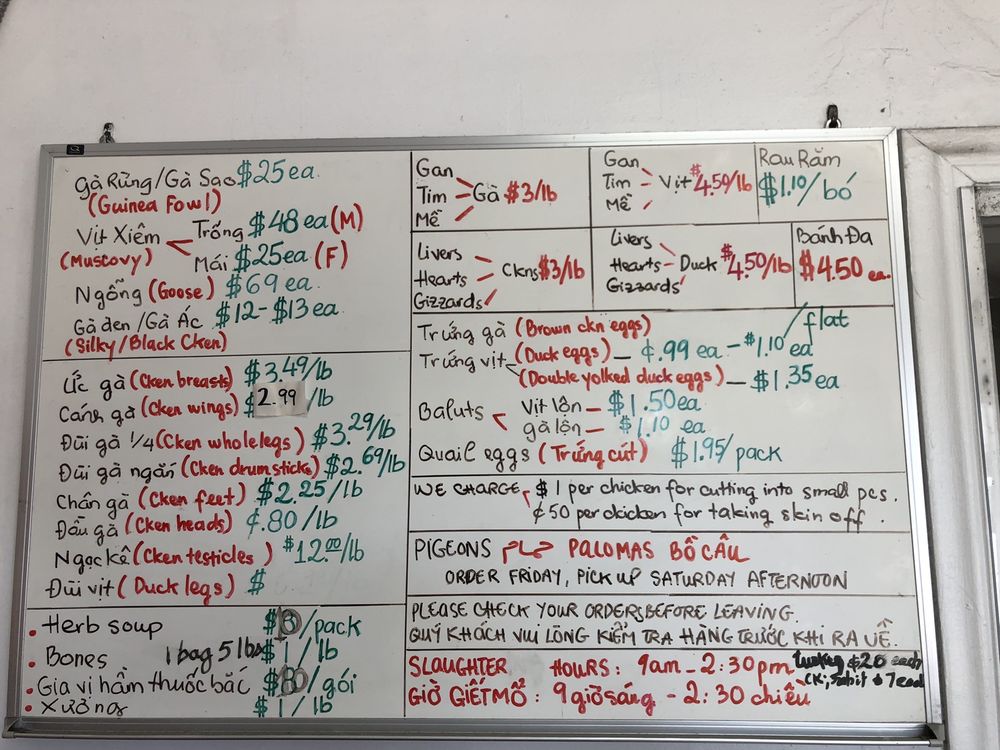 Gà Rừng/Gà Sao $25 ea.
(Guinea Fowl)
Vịt Xiêm Trống $48 ea (M)
(Muscovy) Mái $25ea (F)
Ngỗng (Goose) $69 ea.
Gà đen /Gà Ác $12-$13 ea
(Silky/Black Cken)
Ức gà (Cken breasts) $3.49/lb
Cánh gà (Cken wings) $2.99/lb
Đùi gà 1/4 (Cken whole legs) $3.29/lb
Đùi gà ngắn (Cken drumsticks) $2.69/lb
Chân gà (Cken feet) $2.25/lb
Đầu gà (Cken heads) ¢.80/lb
Ngọc kê (Cken testicles) $12.00/lb
Đùi vịt (Duck legs) $
• Herb soup /pack
• Bones 1 bag 5 lbs $1/lb
• Gia vị hầm thuốc bắc /gói
• Xương $1/lb
Gan
Tim Gà $3/lb
Mề
Gan
Tim Vịt $4.50/lb
Mề
Rau Răm
$1.10/bó
Livers
Hearts Ckns $3/lb
Gizzards
Livers
Hearts Duck $4.50/lb
Gizzards
Bánh Đa
$4.50 ea.
Trứng gà (Brown ckn eggs) /flat
Trứng vịt (Duck eggs) — ¢.99 ea - $1.10 ea
(Double yolked duck eggs) — $1.35ea
Baluts Vịt lộn — $1.50ea
gà lộn — $1.10 ea
Quail eggs (Trứng cút) $1.95/pack
WE CHARGE $1 per chicken for cutting into small pcs.
¢50 per chicken for taking skin off.
PIGEONS حمام PALOMAS BỒ CÂU
ORDER FRIDAY, PICK UP SATURDAY AFTERNOON
PLEASE CHECK YOUR ORDERS BEFORE LEAVING.
QUÝ KHÁCH VUI LÒNG KIỂM TRA HÀNG TRƯỚC KHI RA VỀ.
SLAUGHTER HOURS: 9am - 2:30pm turkey $20 each
GIỜ GIẾT MỔ: 9 giờ sáng - 2:30 chiều